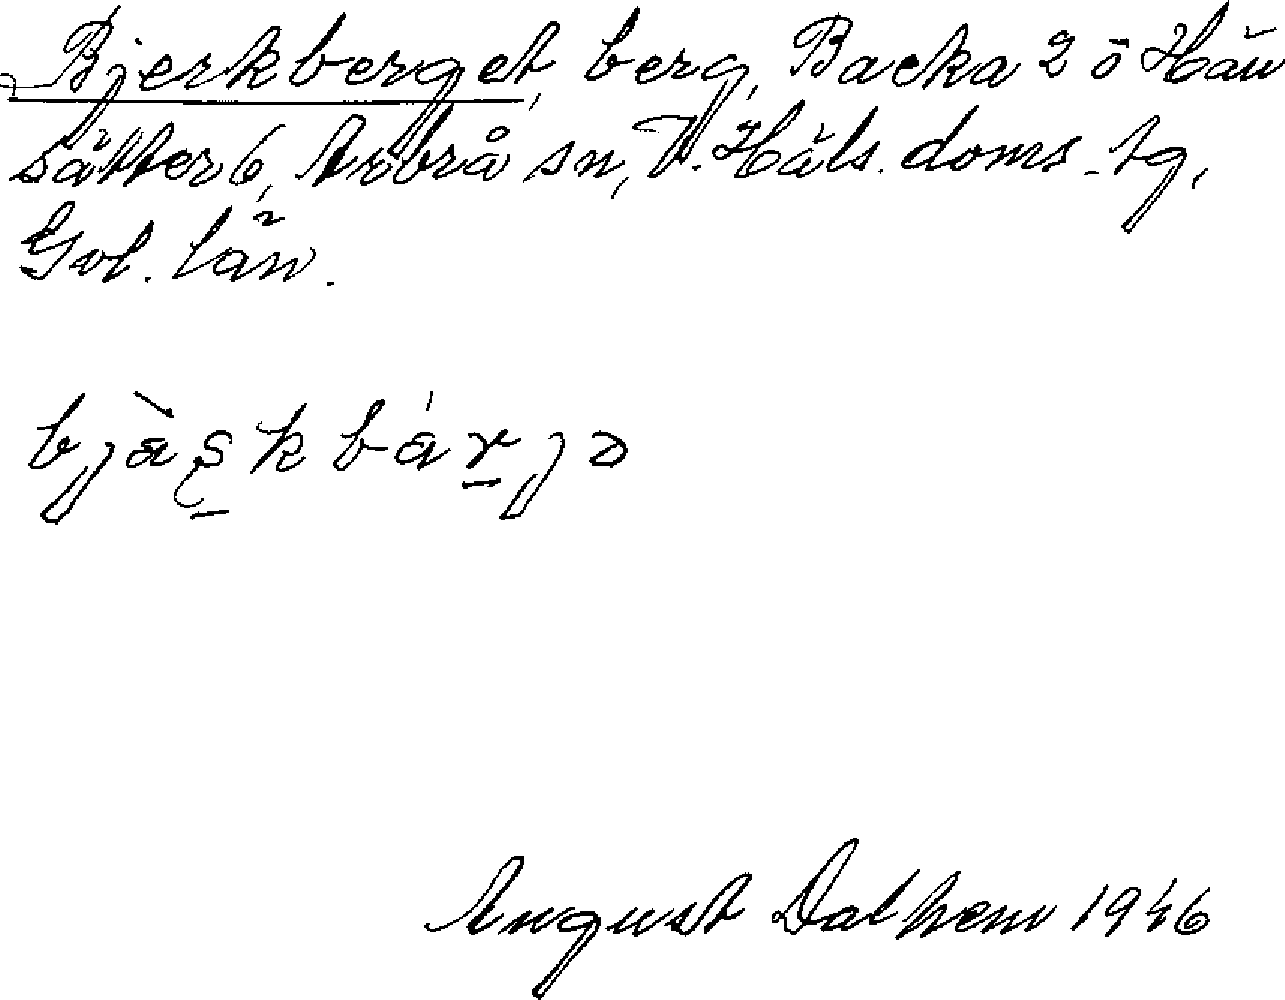 Bjerkberget, berg, Backa 2 o Hän
sätter 6, Arbrå sn, V. Häls. doms.tg,
Gvl. län.
bjàşkbárjə
August Dalhem 1946